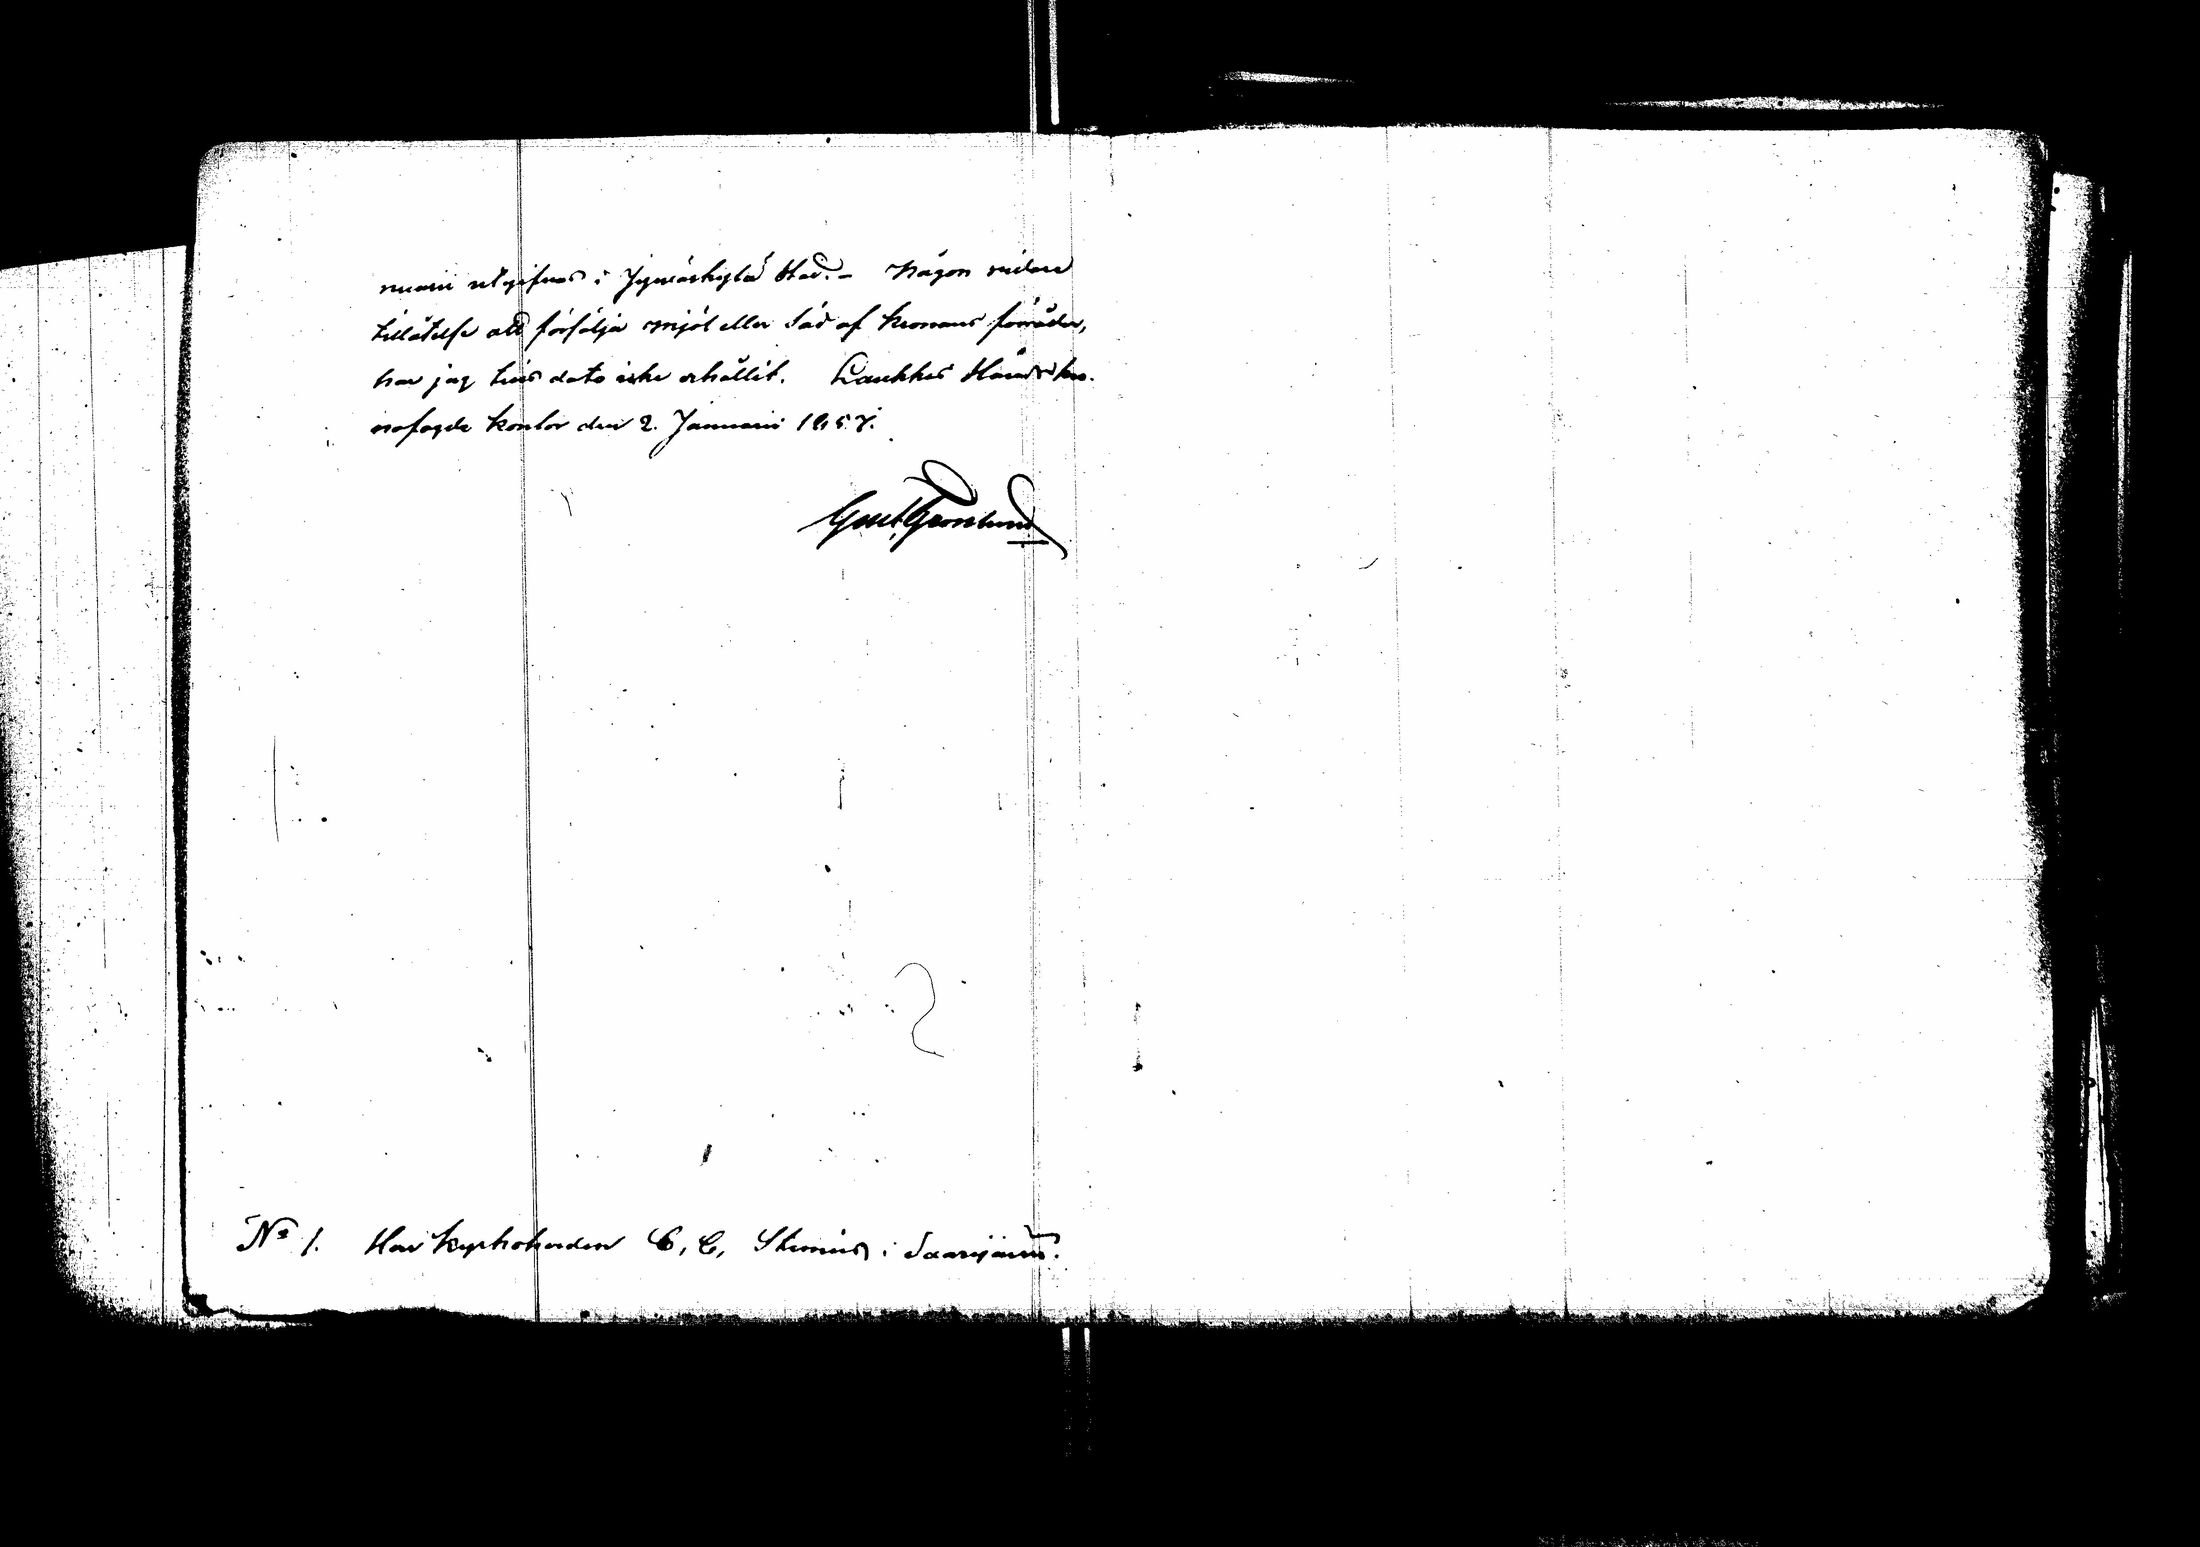 nuarii utgifvas i Jywäskylä Stad. – Någon vidare
tillåtelse att försälja mjöl eller Säd af Kronans förråder,
har jag tius dato icke erhållit. Laukkas Härads kro-
nofogde Kontor den 2. Januarii 1857.
Gust. Grönlund
No 1. Herr Kyrkoherden C. C. Stenius i Saarijärvi.